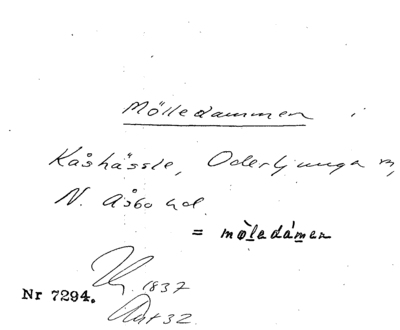 Mölledammen i
Kåshässle, Oderljunga sn,
N. Åsbo hd.
= möledámen
1837
Nr 7294.
Ant 32